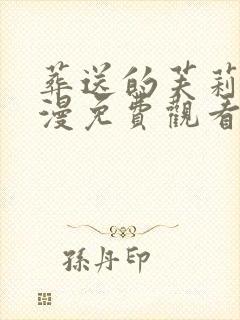 葬送的芙莉
漫免費觀看
孫丹印